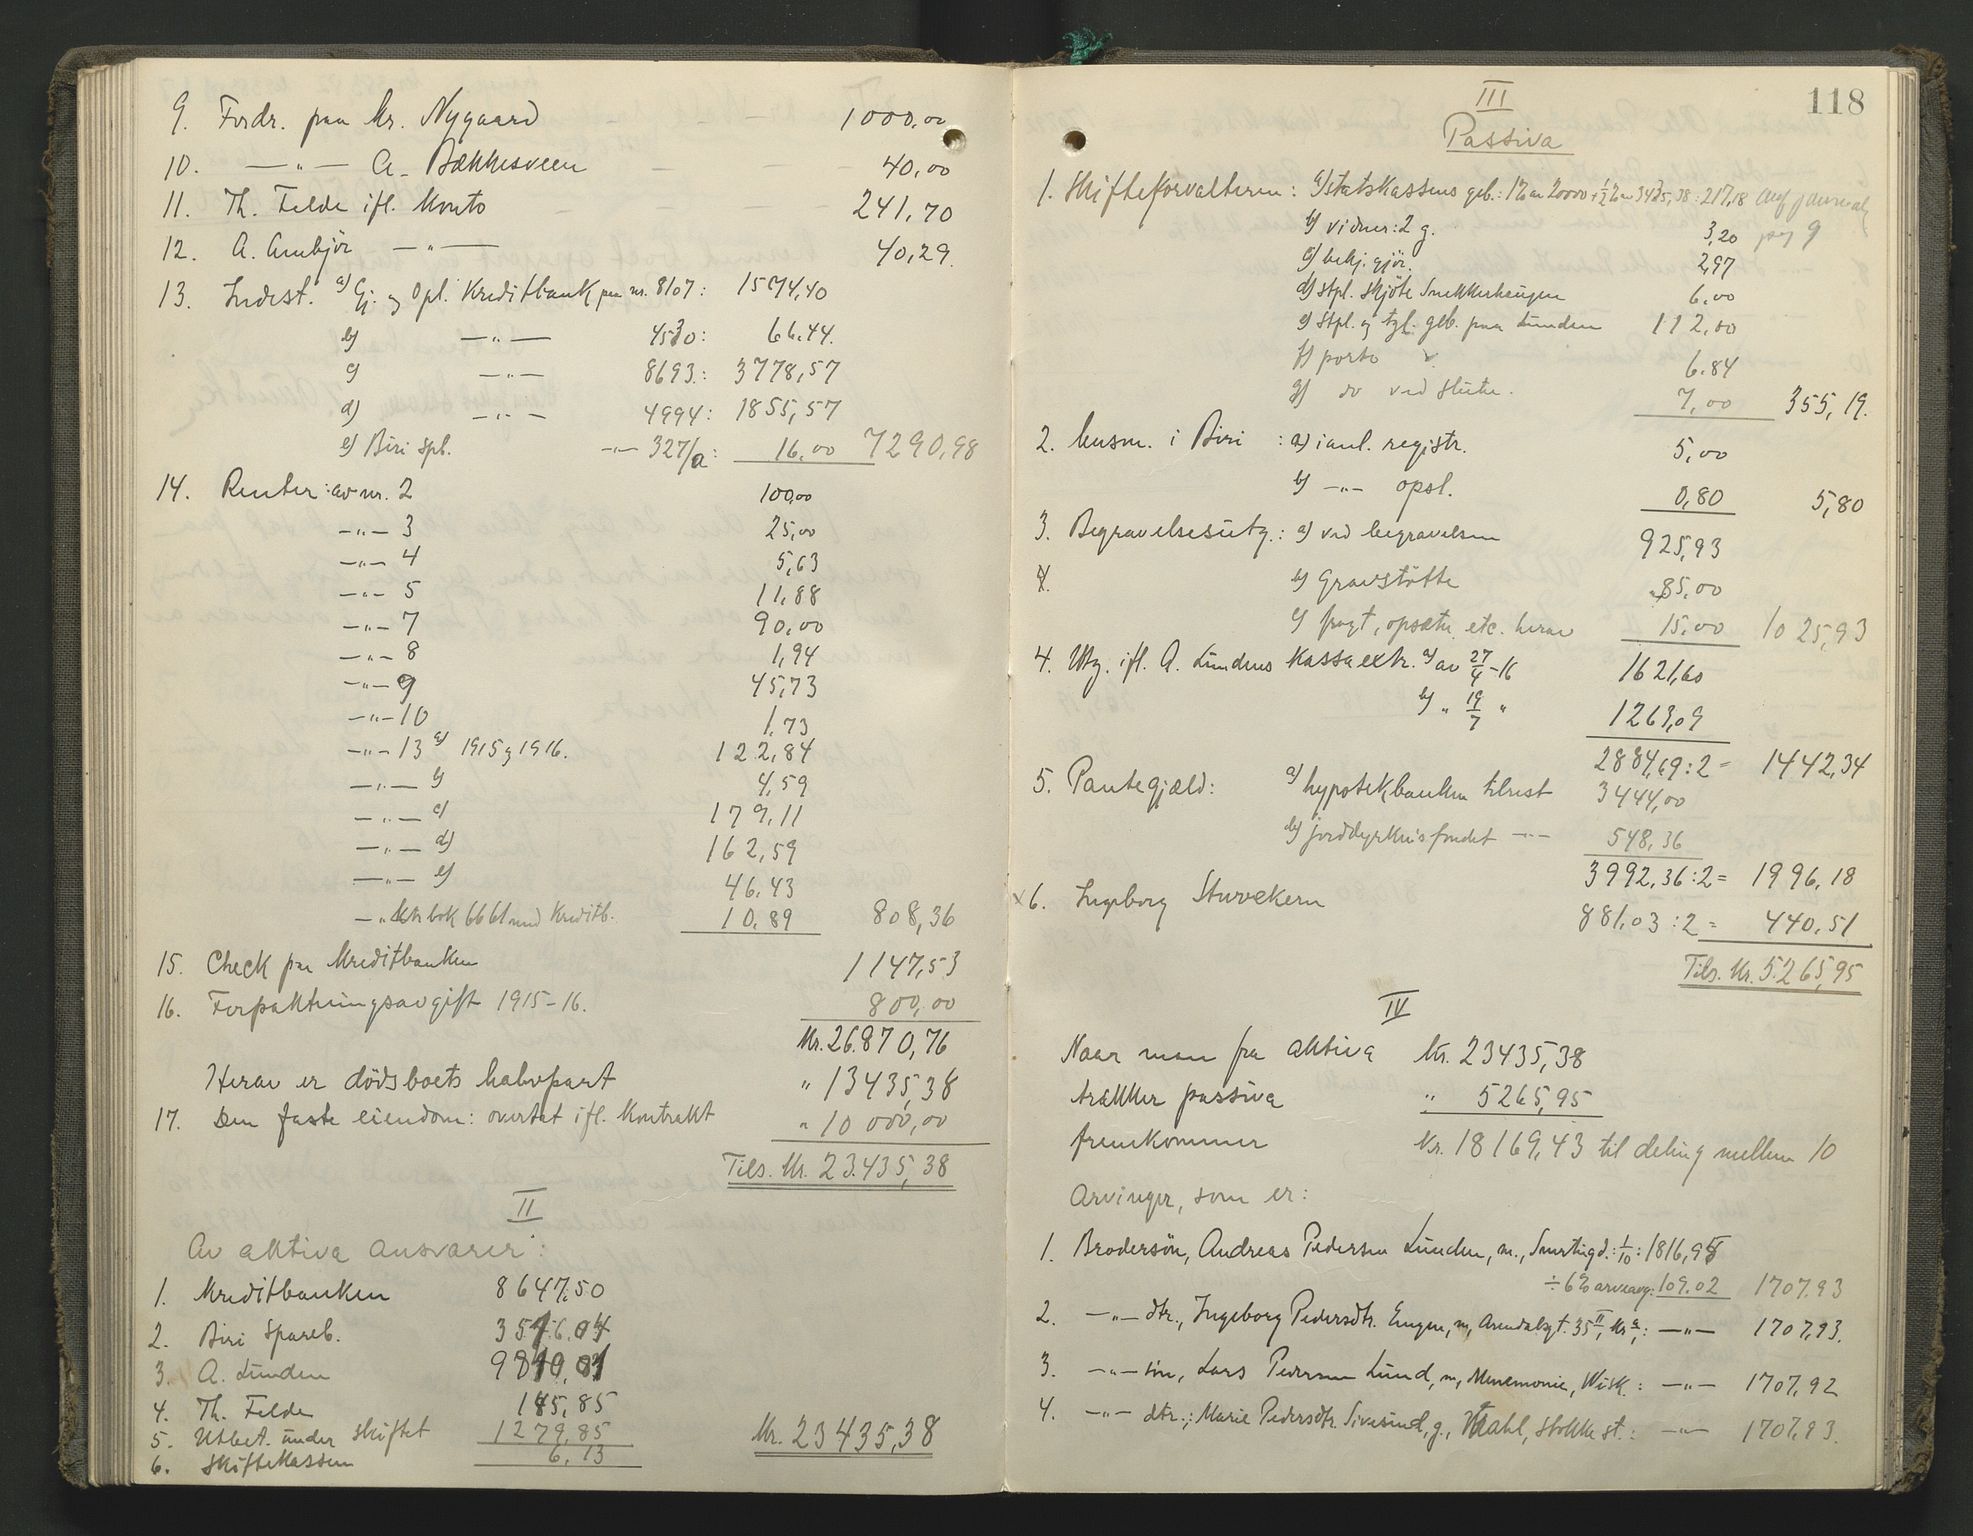 9. Fordr. paa Kr. Nygaard 1000,00
10. —"— A. Bækkesveen 40,00
11. Th. Felde ifl. konto 241,70
12. A. Ambjör —"— 40,29.
13. Indest. a) Gj. og Opl. Kreditbank paa nr. 8107: 1574,40
b) —"— 4530: 66.44.
c) —"— 8693: 3778,57
d) —"— 4994: 1855,57
e) Biri Spb. —"— 327/a: 16,00 7290,98
14. Renter: av nr. 2 100,00
—"— 3 25,00
—"— 4 5,63
—"— 5 11,88
—"— 7 90,00
—"— 8 1,94
—"— 9 45,73
—"— 10 1,73
—"— 13 a) 1915 og 1916. 122,84
—"— b) 4,59
—"— c) 179,11
—"— d) 162,59
—"— e) 46,43
—"— bok 6661 med Kreditb. 10,89 808,36
15. Check paa Kreditbanken 1147,53
16. Forpaktningsavgift 1915-16. 800,00
Kr. 26.870,76
Herav er dödsboets halvpart " 13435,38
17. Den faste eiendom: overtat ifl. kontrakt " 10 000,00
Tils. Kr. 23.435,38
II
Av aktiva ansvarer:
1. Kreditbanken 8647,50
2. Biri Spareb.
3. A. Lunden
4. Th. Felde 185,85
5. Utbet. under skiftet 1279,85
6. Skiftekassen 6,13 Kr. 23435,38
118
III
Passiva
1. Skifteforvalteren: a) statskassens geb.: 1% av 20000 + ½% av 3435,38: 217,18
b) vidner: 2 g. 3,20 pag 9
c) bekj.gjör. 2,97
d) stpl. skjöte Snekkerhaugen 6,00
e) stpl. og tgl. geb. paa Lunden 112,00
f) porto 6,84
g) do ved slutn. 7,00 355,19.
2. Lensm. i Biri: a) ianl. registr. 5,00
b) —"— opsl. 0,80 5,80
3. Begravelsesutg.: a) ved begravelsen 925,93
4. b) gravstötte 85,00
c) fragt, opsætn. etc. herav 15,00 1025,93
4. Utg. ifl. A. Lundens kassaextr. a) av 27/4-16 1621,60
b) " 19/7 " 1263,09
2884,69:2= 1442,34
5. Pantegjæld: a) hypotekbanken tilrest 3444,00
b) jorddyrkningsfondet —"— 548,36
3992,36:2= 1996,18
x6. Ingeborg Sturvekern 881,03:2= 440,51
Tils. Kr. 5.265,95
IV
Naar man fra aktiva Kr. 23435,38
trækker passiva " 5265,95
fremkommer Kr. 18169,43 til deling mellem 10
arvinger, som er:
1. Brodersön, Andreas Pedersen Lunden, m., Snertingd.: 1/10: 1816,95
÷ 6% arveavg.: 109.02 1707,93
2. —"— dtr., Ingeborg Pedersdtr. Engen, m., Arendalsgt. 35 II, Kr.a,: —"— 1707,93.
3. —"— sön, Lars Pedersen Lund, m., Menemonie, Wisk.: —"— 1707,92
4. —"— dtr.; Marie Pedersdtr. Sivesind, g., Vardal, Stokke st.: —"— 1707,93.